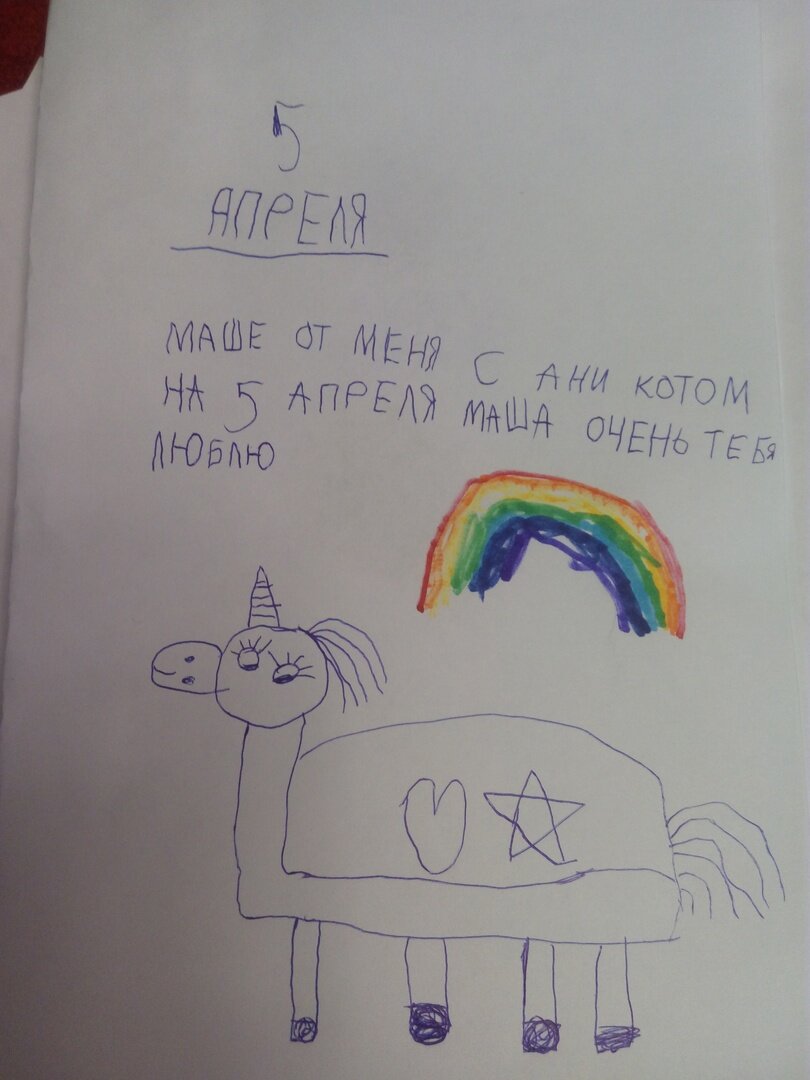 5
АПРЕЛЯ
МАШЕ ОТ МЕНЯ С АНИ КОТОМ
НА 5 АПРЕЛЯ МАША ОЧЕНЬ ТЕБЯ
ЛЮБЛЮ